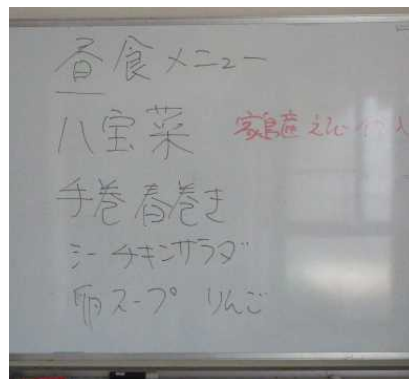 昼食メニュー
八宝菜
手巻春巻き
シーチキンサラダ
卵スープ りんご